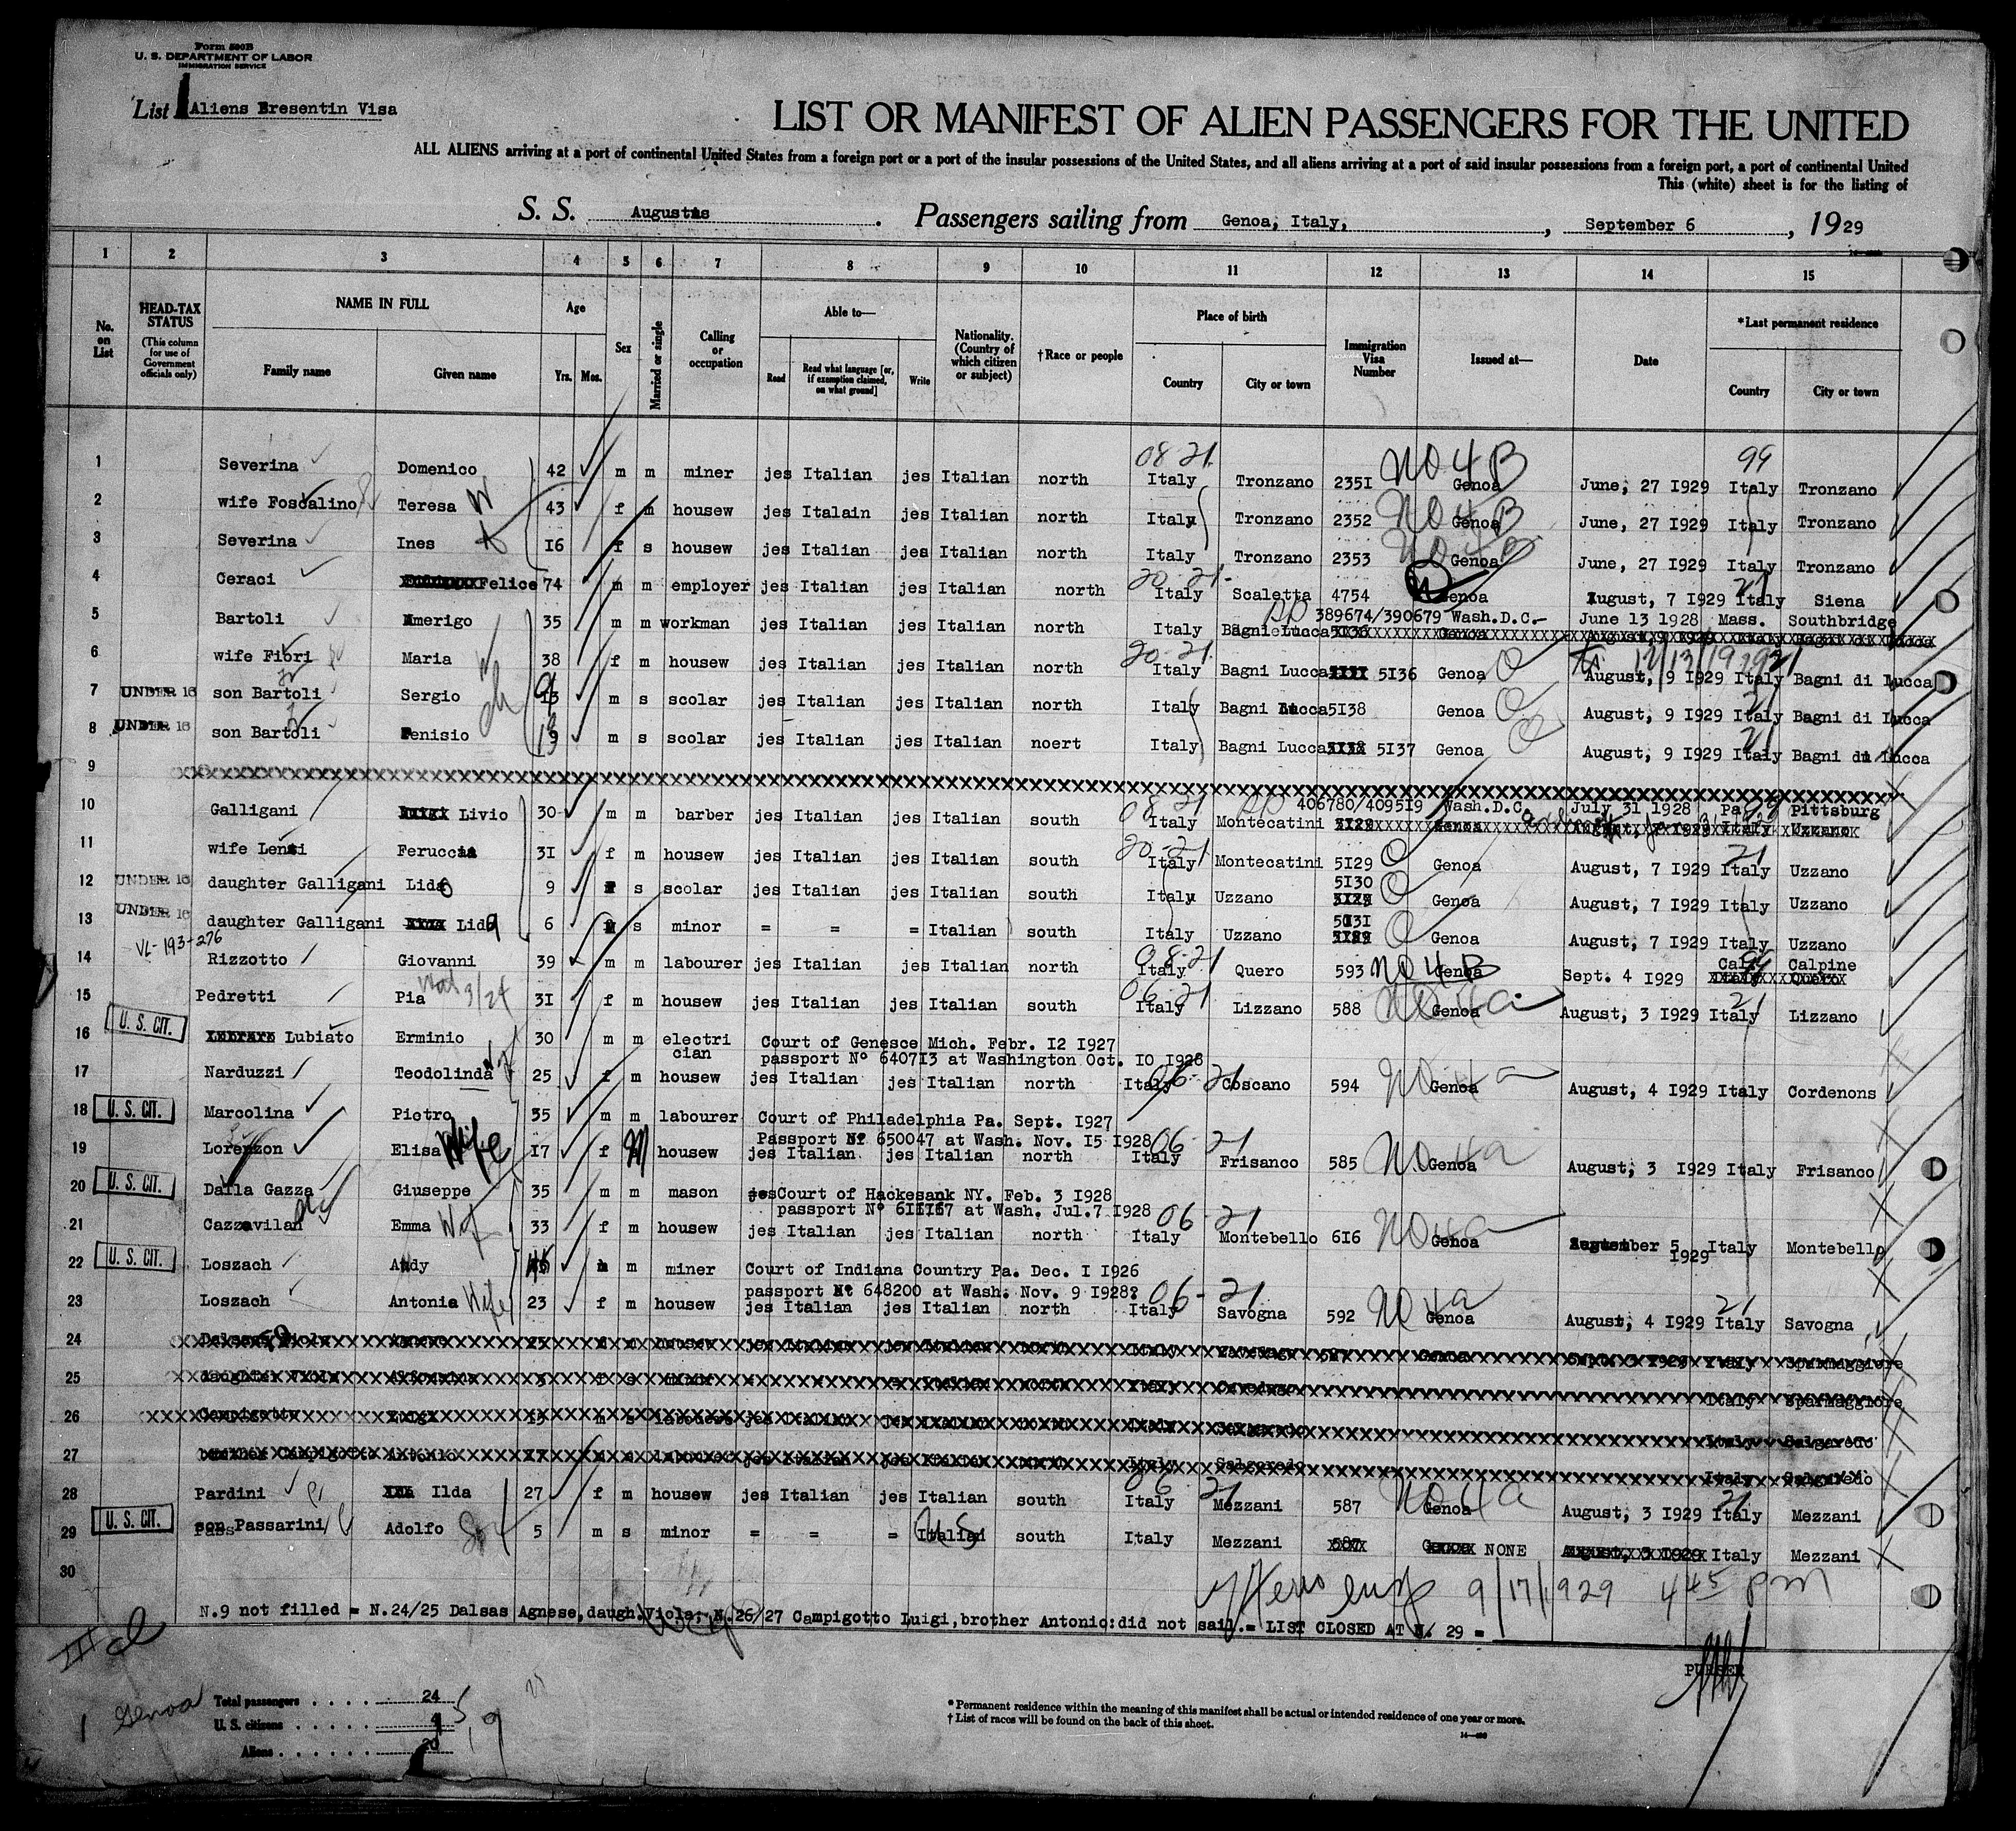 Form 500B
U. S. DEPARTMENT OF LABOR
IMMIGRATION SERVICE
List 1 Aliens Bresentin Visa
LIST OR MANIFEST OF ALIEN PASSENGERS FOR THE UNITED
ALL ALIENS arriving at a port of continental United States from a foreign port or a port of the insular possessions of the United States, and all aliens arriving at a port of said insular possessions from a foreign port, a port of continental United
This (white) sheet is for the listing of
S. S. Augustus. Passengers sailing from Genoa, Italy, , September 6 , 1929
1 2 3 4 5 6 7 8 9 10 11 12 13 14 15
No. on List
HEAD-TAX STATUS (This column for use of Government officials only)
NAME IN FULL
Family name Given name
Age Yrs. Mos.
Sex
Married or single
Calling or occupation
Able to— Read Read what language [or, if exemption claimed, on what ground] Write
Nationality. (Country of which citizen or subject)
†Race or people
Place of birth Country City or town
Immigration Visa Number
Issued at—
Date
*Last permanent residence Country City or town
08 21. NO 4 B 99
1 Severina Domenico 42 m m miner jes Italian jes Italian north Italy Tronzano 2351 Genoa June, 27 1929 Italy Tronzano
2 wife Foscalino Teresa W 43 f m housew jes Italain jes Italian north Italy Tronzano 2352 NO 4 B Genoa June, 27 1929 Italy Tronzano
3 Severina Ines 16 f s housew jes Italian jes Italian north Italy Tronzano 2353 NO 4 B Genoa June, 27 1929 Italy Tronzano
4 Ceraci Felice 74 m m employer jes Italian jes Italian north 20-21- Italy Scaletta 4754 Genoa August, 7 1929 Italy 21 Siena
PP 389674/390679 Wash.D.C.- June 13 1928 Mass. Southbridge
5 Bartoli Amerigo 35 m m workman jes Italian jes Italian north Italy Bagni Lucca 5136 Genoa
6 wife Fiori Maria W 38 f m housew jes Italian jes Italian north 20-21 Italy Bagni Lucca 5136 Genoa 12/13/1929 August, 9 1929 Italy 21 Bagni di Lucca
7 UNDER 16 son Bartoli Sergio ch m s scolar jes Italian jes Italian north Italy Bagni Lucca 5138 Genoa August, 9 1929 Italy 21 Bagni di Lucca
8 UNDER 16 son Bartoli Fenisio m s scolar jes Italian jes Italian noert Italy Bagni Lucca 5137 Genoa August, 9 1929 Italy 21 Bagni di Lucca
9
08 21 PP 406780/409519 Wash.D.C. July 31 1928 Pa. 99 Pittsburg
10 Galligani Livio 30 m m barber jes Italian jes Italian south Italy Montecatini 5129 Genoa Italy Uzzano
11 wife Lenzi Feruccia 31 f m housew jes Italian jes Italian south 20-21 Italy Montecatini 5129 Genoa August, 7 1929 Italy 21 Uzzano
12 UNDER 16 daughter Galligani Lido 9 s scolar jes Italian jes Italian south Italy Uzzano 5130 Genoa August, 7 1929 Italy Uzzano
13 UNDER 16 daughter Galligani Lida 6 s minor = = = Italian south Italy Uzzano 5131 Genoa August, 7 1929 Italy Uzzano
VL-193-276
14 Rizzotto Giovanni 39 m m labourer jes Italian jes Italian north 08-21 Italy Quero 593 NO 4 B Genoa Sept. 4 1929 Calif. Calpine
15 Pedretti Pia 31 f m housew jes Italian jes Italian south 06-21 Italy Lizzano 588 NO 4 a Genoa August, 3 1929 Italy 21 Lizzano
U. S. CIT.
16 Lubiato Erminio 30 m m electri cian Court of Genesce Mich. Febr. 12 1927
passport N° 640713 at Washington Oct. 10 1928
17 Narduzzi Teodolinda 25 f m housew jes Italian jes Italian north Italy 06-21 Coscano 594 NO 4 a Genoa August, 4 1929 Italy Cordenons
18 U. S. CIT. Marcolina Pietro 35 m m labourer Court of Philadelphia Pa. Sept. 1927
Passport N° 650047 at Wash. Nov. 15 1928
19 Lorenzon Elisa Wife 17 f M housew jes Italian jes Italian north Italy 06-21 Frisanco 585 NO 4 a Genoa August, 3 1929 Italy Frisanco
20 U. S. CIT. Dalla Gazza Giuseppe 35 m m mason Court of Hackesank NY. Feb. 3 1928
passport N° at Wash. Jul.7 1928
21 Cazzavilan Emma 33 f m housew jes Italian jes Italian north Italy 06-21 Montebello 616 NO 4 a Genoa September 5 1929 Italy Montebello
22 U. S. CIT. Loszach Andy m m miner Court of Indiana Country Pa. Dec. 1 1926
passport N° 648200 at Wash. Nov. 9 1928?
23 Loszach Antonia Wife 23 f m housew jes Italian jes Italian north Italy 06-21 Savogna 592 NO 4 a Genoa August, 4 1929 Italy 21 Savogna
24 Dalsass Viola Agnese 25 f m housew jes Italian jes Italian north Italy Genoa 1929 Italy Spormaggiore
25 daughter Viola s minor Italian Italy Italy Spormaggiore
26 Campigotto Luigi m s jes Italian jes Italian Italy Salgaredo Italy Salgaredo
27 brother Campigotto Antonio 17 labourer jes Italian jes Italian north Italy Salgaredo Italy Salgaredo
28 Pardini Ilda 27 f m housew jes Italian jes Italian south 06 21 Italy Mezzani 587 NO 4 a Genoa August, 3 1929 Italy 21 Mezzani
29 U. S. CIT. son Passarini Adolfo Son 5 m s minor = = = Italian US south Italy Mezzani 587 Genoa NONE August, 3 1929 Italy Mezzani
30
9/17/1929 4 45 pm
N.9 not filled = N.24/25 Dalsas Agnese,daugh.Viola,- N.26/27 Campigotto Luigi,brother Antonio:did not sail.= LIST CLOSED AT N. 29 =
PURSER
1 Genoa
Total passengers . . . . . 24
U. S. citizens . . . . . 4 5
Aliens . . . . . . 20 19
* Permanent residence within the meaning of this manifest shall be actual or intended residence of one year or more.
† List of races will be found on the back of this sheet.